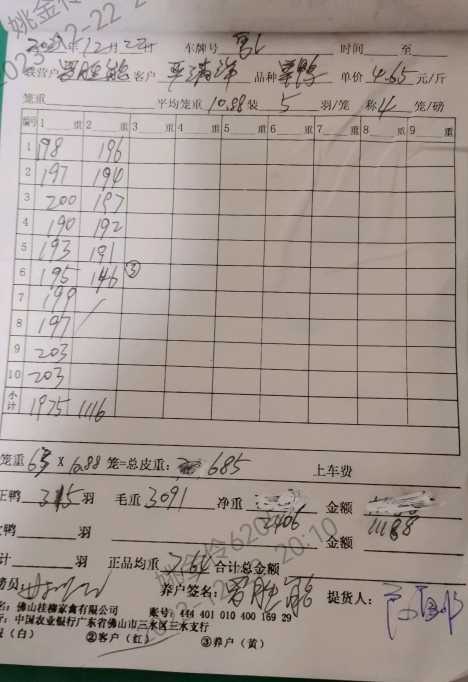 2023年12月22日 车牌号 时间 至
联营户 客户 品种 单价 4.65 元/斤
笼重 平均笼重 10.88 装 5 羽/笼 称 4 笼/磅
编号 1 重 2 重 3 重 4 重 5 重 6 重 7 重 8 重 9 重
1 198 196
2 197 194
3 200 197
4 190 192
5 193 191
6 195 146 ③
7 199
8 197
9 203
10 203
小计 1975 1116
笼重 63 X 10.88 笼=总皮重: 685 上车费
正鸭 315 羽 毛重 3091 净重 2406 金额 11188
鸭 羽 金额
计 羽 正品均重 7.64 合计总金额
员: 养户签名: 提货人:
名: 佛山桂柳家禽有限公司 账号: 444 401 010 400 169 29
行: 中国农业银行广东省佛山市三水区三水支行
(白) ②客户(红) ③养户(黄)